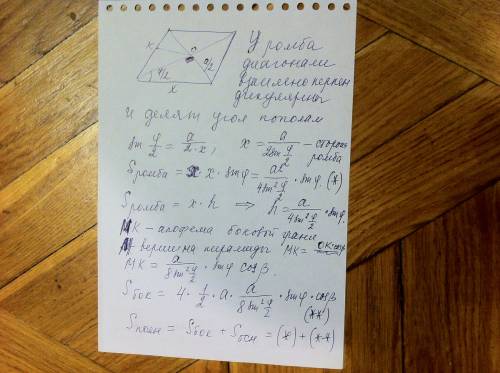 x
O
a/2
φ/2
x
У ромба
диагонали
взаимено перпен
дикулярны
и делят угол пополам
sin φ/2 = a/(2·x), x = a/(2sin φ/2) – сторона ромба
Sромба = x · x · sinφ = a²/(4sin² φ/2) · sinφ. (*)
Sромба = x · h ⇒ h = a/(4sin² φ/2) · sinφ.
MK – апофема боковой грани
M вершина пирамиды MK = OK·cosβ
MK = a/(8sin² φ/2) · sinφ cosβ.
Sбок = 4 · 1/2 · a · a/(8sin² φ/2) · sinφ · cosβ
(**)
Sполн = Sбок + Sосн = (*) + (**)